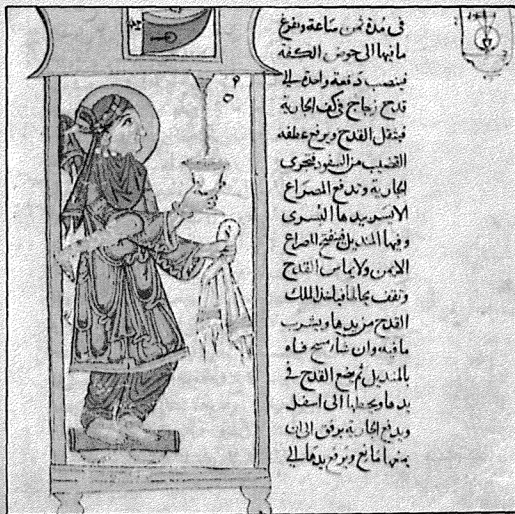 في مدة ثمن ساعة وتفرغ
ما فيها الى حوض الكفة
فينصب دفعة واحدة الى
قدح زجاج في كف الجارية
فيثقل القدح ويرفع عطفه
القضيب من السفود فتجرى
الجارية وتدفع المصراع
الايسر بيدها اليسرى
وفيها المنديل فينفتح المصراع
الايمن ولا يماس القدح
وتقف بحالها فياخذ الملك
القدح من يدها ويشرب
ما فيه وان شاء مسح فاه
بالمنديل ثم يضع القدح في
يدها ويحطها الى اسفل
ويدفع الجارية برفق الى ان
يمنعها مانع ويرفع يدها الى